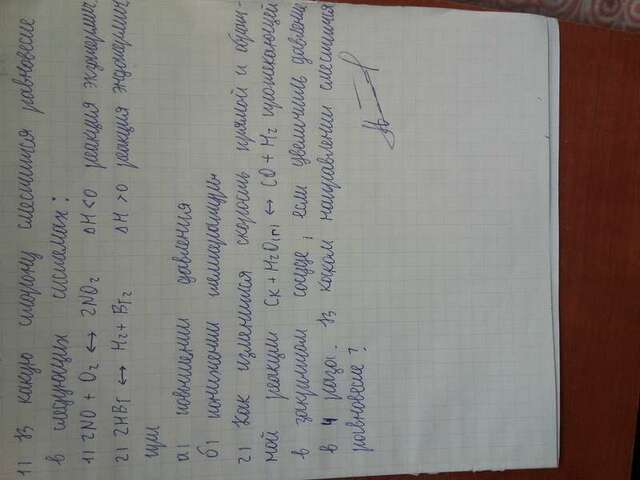 1) В какую сторону сместится равновесие
в следующих системах:
1) 2NO + O₂ ↔ 2NO₂ ΔH<0 реакция экзотермич
2) 2HBr ↔ H₂ + Br₂ ΔH >0 реакция эндотермич
при
а) повышении давления
б) понижении температуры
2) Как изменится скорость прямой и обрат-
ной реакции Cк + H₂O(г) ↔ CO + H₂ протекающей
в закрытом сосуде, если увеличить давление
в 4 раза. В каком направлении сместится
равновесие?